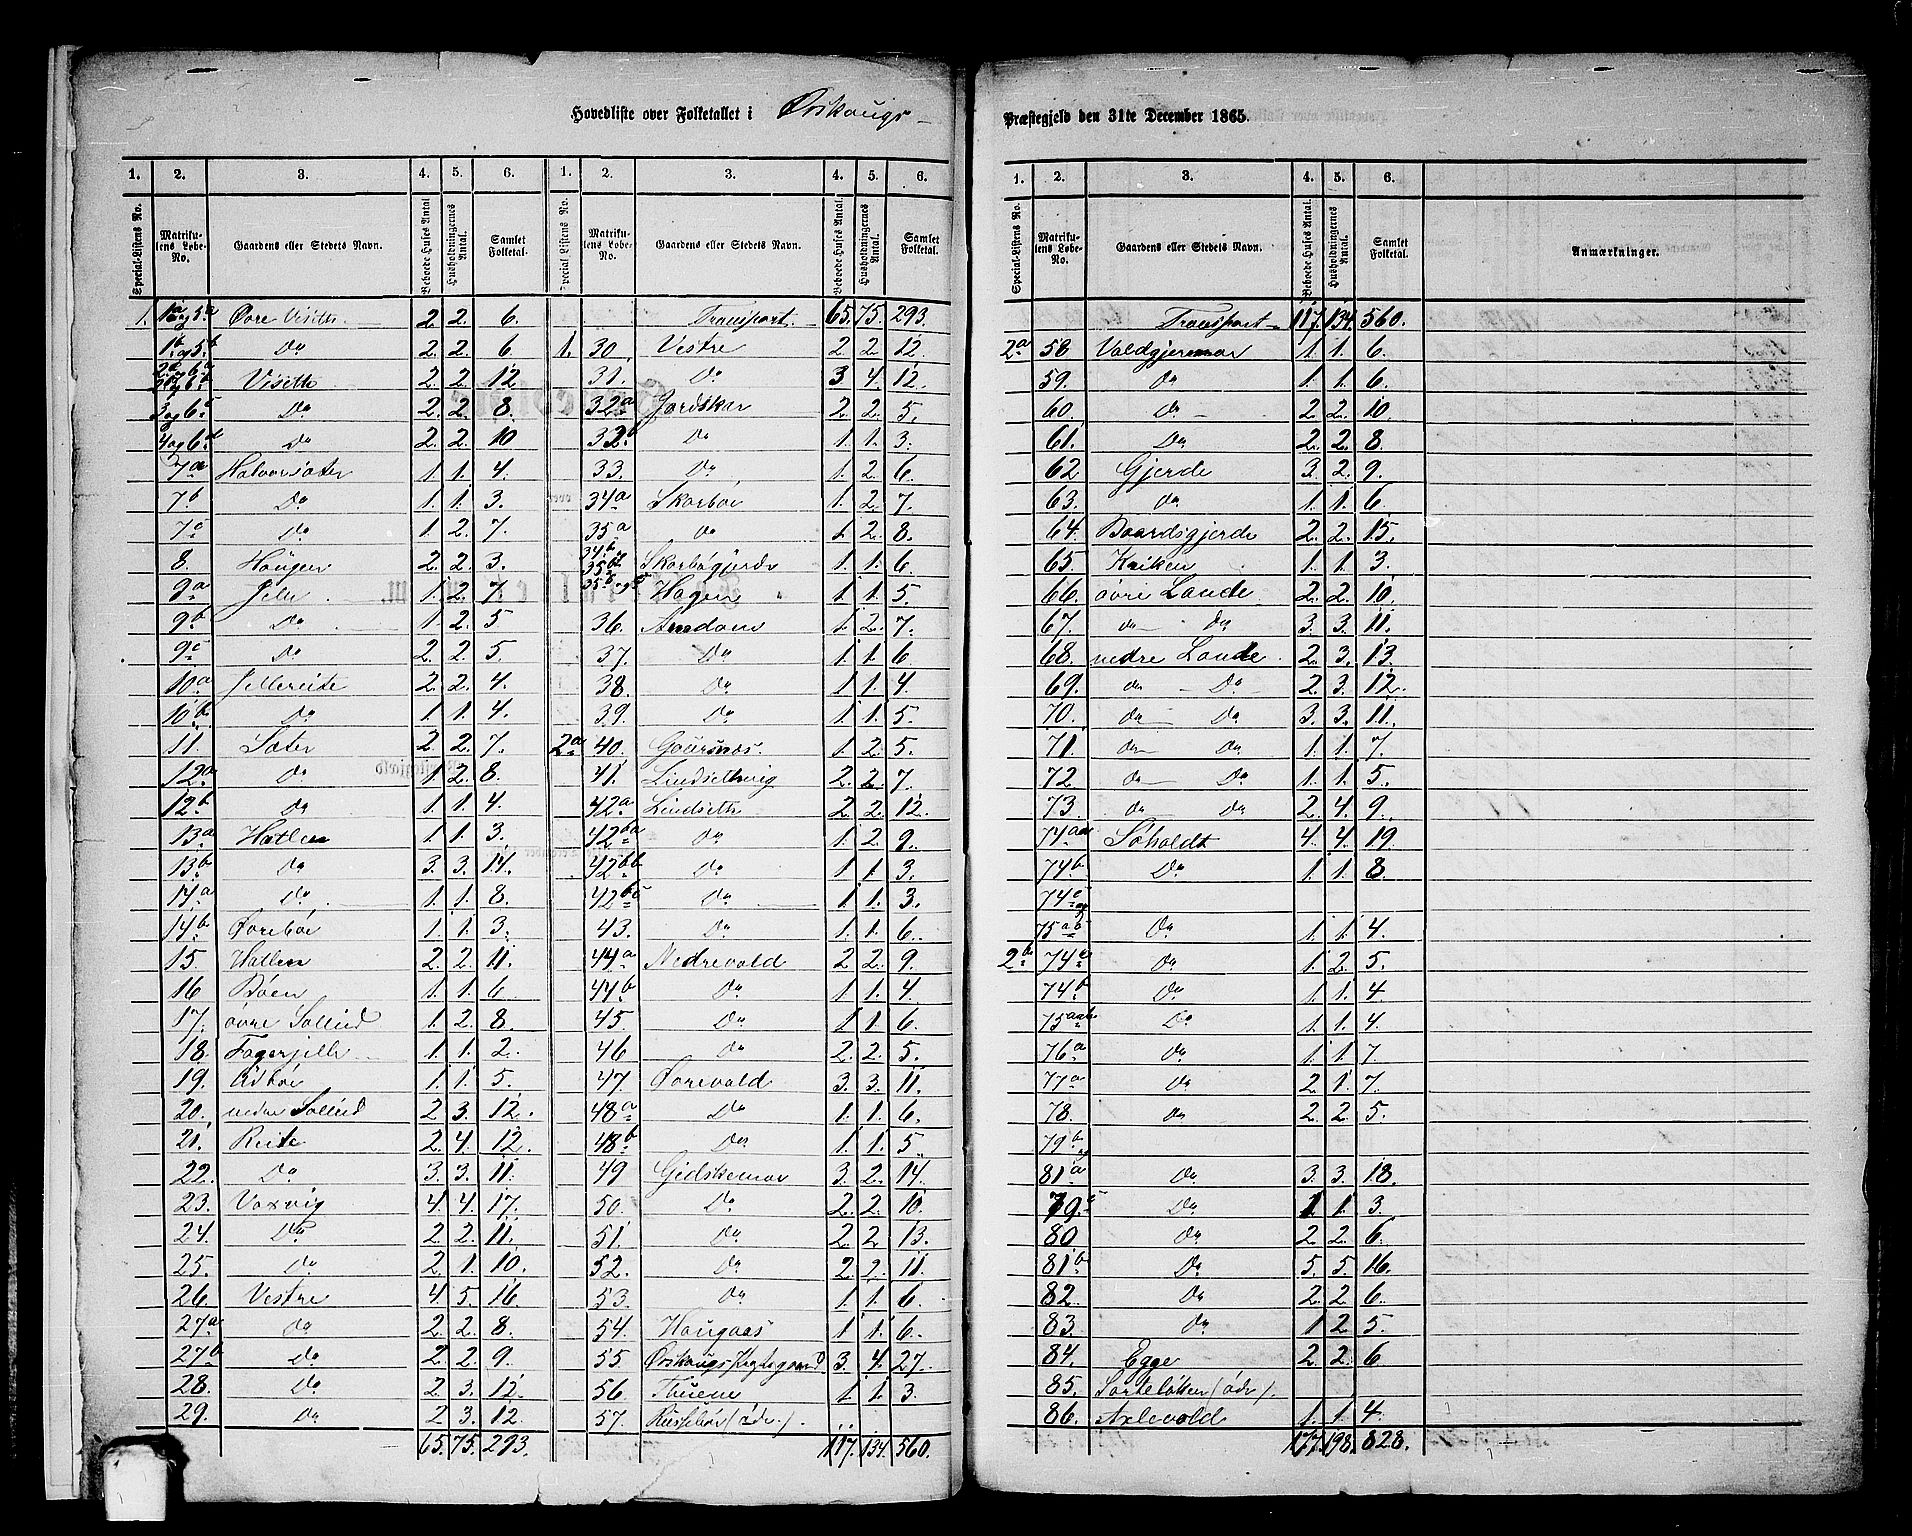 Hovedliste over Folketallet i Ørskougs- Præstegjeld den 31te December 1865.
1. 2. 3. 4. 5. 6. 1. 2. 3. 4. 5. 6.
Special-Listens No. Matrikulens Løbe-No. Gaardens eller Stedets Navn. Beboede Huses Antal. Husholdningernes Antal. Samlet Folketal. Special-Listens No. Matrikulens Løbe-No. Gaardens eller Stedets Navn. Beboede Huses Antal. Husholdningernes Antal. Samlet Folketal.
1. 1a og 5a Øvre Viseth 2. 2. 6.
1b og 5b Do 2. 2. 6
Viseth 2. 2. 12
3 og 6c Do 2. 2. 8.
4 og 6d Do 2. 2. 10
7a Halvorsæter 1. 1. 4.
7b Do 1. 1. 3.
7c Do 1. 2. 7.
8. Hougen 2. 2. 3.
9a Jelle 1. 2. 7
9b Do 1. 2. 5
9c Do 2. 2. 5.
10a Jellereite 2. 2. 4.
10b Do 1. 1. 4.
11. Sæter 2. 2. 7.
12a Do 1. 2. 8.
12b Do 1. 1. 4.
13a Hatlen 1. 1. 3.
13b Do 3. 3. 14.
14a Do 1. 1. 8.
14b Ørebøe 1. 1. 3.
15. Hatlen 2. 2. 11.
16 Bøen 1. 1. 6
17. øvre Sollied 1. 2. 8.
18. Fagerjelle 1. 1. 2.
19. Aabøe 1. 1. 5.
20. nedre Sollied 2. 3. 12.
21. Reite 2. 4. 12.
22. Do 3. 3. 11.
23. Vaxvig 4. 4. 17.
24. Do 2. 2. 11.
25. Do 2. 1. 10.
26. Vestre 4. 5. 16.
27a Do 2. 2. 8.
27b Do 2. 2. 9.
28. Do 2. 3. 12.
29. Do 2. 3. 12.
65. 75. 293.
Transport. 65. 75. 293.
1. 30. Vestre 2. 2. 12
31. Do 3 4. 12.
32a Jordskar 2. 2. 5.
32b Do 1. 1. 3.
33. Do 1. 2. 6.
34a Skarbøe 1. 2. 7.
35a Do 1. 2. 8.
34b Skarbøgjerde 1. 1. 6.
Hagen 1. 1. 5.
36. Amdam 1. 2. 7.
37. Do 1. 1. 6.
38. Do 1. 1. 4.
39. Do 1. 1. 5.
2a 40. Gaursnæs. 1. 2. 5.
41. Lindsethvig 2. 2. 7.
42a Lindseth 2. 2. 12.
42ba Do 1. 2. 9.
42bb Do 1. 1. 3.
42bc Do 1. 1. 3.
43. Do 1. 1. 6.
44a Nedrevold 2 2. 9.
44b Do 1. 1. 4.
45. Do 1 1. 6.
46 Do 2. 2. 5.
47. Ørevold 3. 3. 11.
48a Do 1. 1. 6.
48b Do 1. 1. 5
49 Gidskemoe 3. 2. 14.
50. Do 2. 2. 10.
51. Do 2. 2. 13.
52. Do 2. 2. 11.
53. Do 1. 1. 6.
54. Hougaas 1. 1. 6.
55. Ørskougs Prgtsgaard 3. 4. 27.
56. Thuene 1. 1. 3.
57. (øde).
117. 134. 560.
1. 2. 3. 4. 5. 6.
Special-Listens No. Matrikulens Løbe-No. Gaardens eller Stedets Navn. Beboede Huses Antal. Husholdningernes Antal. Samlet Folketal. Anmærkninger.
Transport 117. 134. 560.
2a 58 Valdgjermoe 1. 1. 6.
59. Do 1. 1. 6.
60. Do 2 2. 10.
61. Do 2. 2. 8.
62 Gjerde 3. 2. 9.
63. Do 1. 1. 6
64. Baardsgjerde 2. 2. 15.
65. Kriken 1. 1. 3
66. øvre Lande 2. 2. 10.
67. do Do 3. 3. 11.
68. nedre Lande 2. 3. 13.
69. do Do 2. 3. 12.
70. do Do 3. 3. 11.
71. do Do 1. 1. 7.
72 do Do 1. 1. 5.
73. do Do 2. 4. 9.
Søholdt 4. 4. 19.
74b Do 1. 1. 8.
74c
Do 1. 1. 4.
2b Do 1. 2. 5.
74b Do 1. 1. 4
Do 1. 1. 4.
76a Do 1. 1 7.
77a Do 2. 1. 7.
78. Do 2. 2. 5.
79b og
81a Do 3. 3. 18.
79c Do 1. 1. 3.
80 Do 2. 2. 6.
81b Do 5. 5. 16.
82. Do 2. 2. 6.
83. Do 1 2. 5.
84. Egge 2. 2. 6
85. Sorteløkken (øde).
86. Axlevold 1. 1. 4.
177. 198. 828.